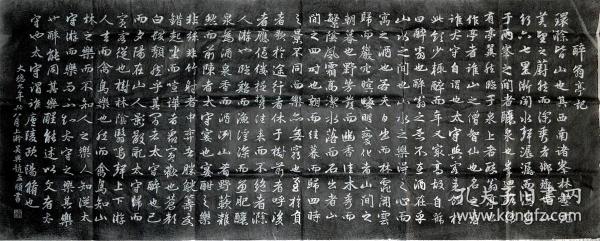 醉翁亭記
環滁皆山也其西南諸峯林壑尤
美望之蔚然而深秀者瑯琊也
行六七里漸聞水聲潺潺而瀉出
于兩峯之間者釀泉也峯回路轉
有亭翼然臨于泉上者醉翁亭也
作亭者誰山之僧智僊也名之者
誰太守自謂也太守與客來飲于
此飲少輒醉而年又最高故自號
曰醉翁也醉翁之意不在酒在乎
山水之間也山水之樂得之心而
寓之酒也若夫日出而林霏開雲
歸而巖穴暝晦明變化者山間之
朝暮也野芳發而幽香佳木秀而
繁陰風霜高潔水落而石出者山
間之四時也朝而往暮而歸四時
之景不同而樂亦無窮也至于負
者歌於途行者休于樹前者呼後
者應傴僂提攜往來而不絕者滁
人游也臨溪而漁溪深而魚肥釀
泉為酒泉香而酒洌山肴野蔌雜
然而前陳者太守宴也宴酣之樂
非絲非竹射者中弈者勝觥籌交
錯起坐而諠譁者衆賓懽也蒼顏
白髮頹然乎其間者太守醉也已
而夕陽在山人影散亂太守歸而
賓客從也樹林陰翳鳴聲上下游
人去而禽鳥樂也然而禽鳥知山
林之樂而不知人之樂人知從太
守游而樂而不知太守之樂其樂
也醉能同其樂醒能述以文者太
守也太守謂誰廬陵歐陽脩也
大德九年八月上澣吳興趙孟頫書
孔夫子旧书网
www.kongfz.com